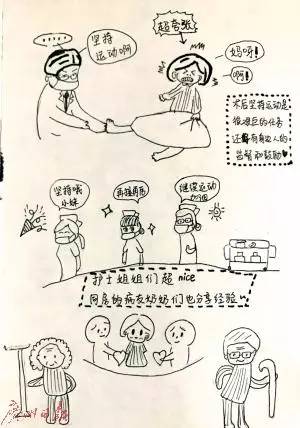 ......
坚持
运动啊
超夸张
妈呀!
啊!
术后坚持运动是
很艰巨的任务
还 有 人的
监督和鼓励
坚持哦
小妹
再接再厉
继续运动
加油
护士姐姐们超 nice
同房的病友奶奶们也分享经验~
广州日报